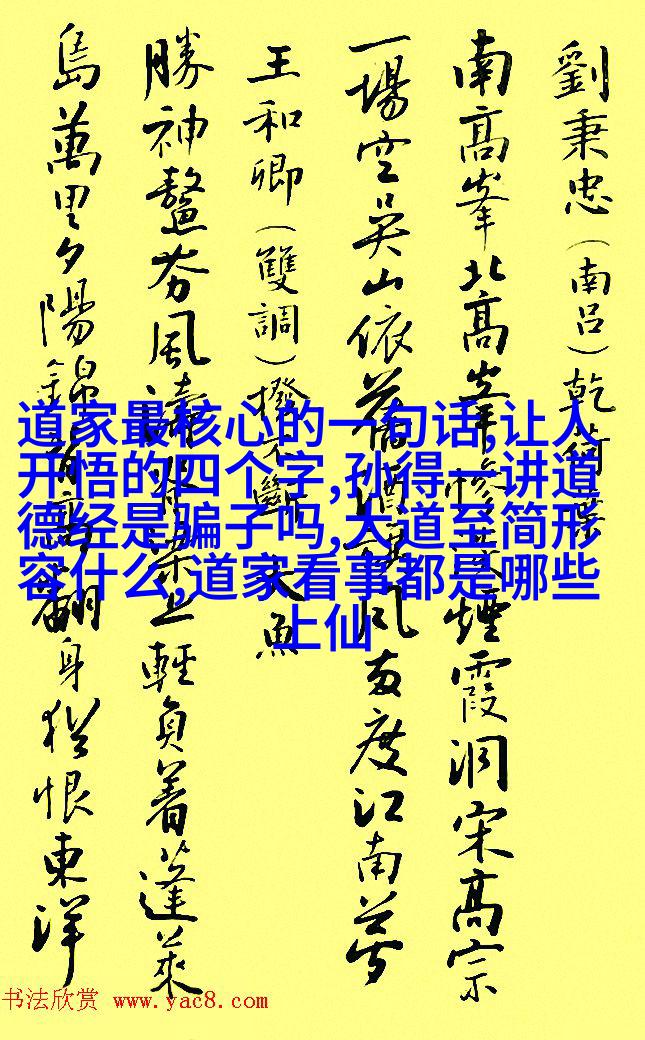 劉秉忠(南呂)乾荷葉
南高峯北高峯慘淡煙霞洞宋高宗
一場空吴山依舊酒旗風兩度江南夢
王和卿(雙調)撥不斷 大魚
勝神鼇夯風濤脊梁上輕負着蓬萊
島萬里夕陽錦背高翻身猶恨東洋
道家最核心的一句话,让人
开悟的四个字,孙得一讲道
德经是骗子吗,大道至简形
容什么,道家看事都是哪些
上仙
书法欣赏 www.yac8.com